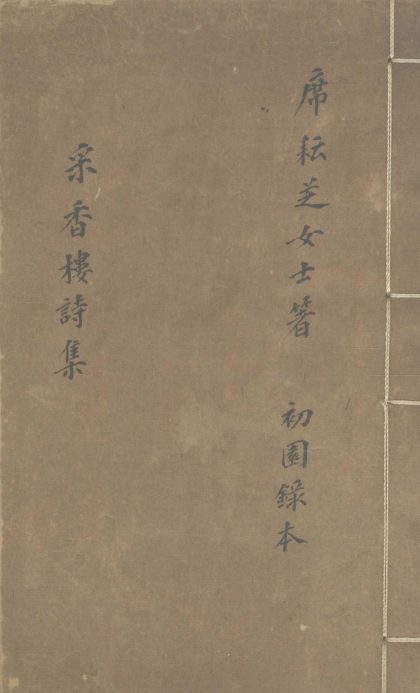 席耘芝女士箸 初園錄本
采香樓詩集